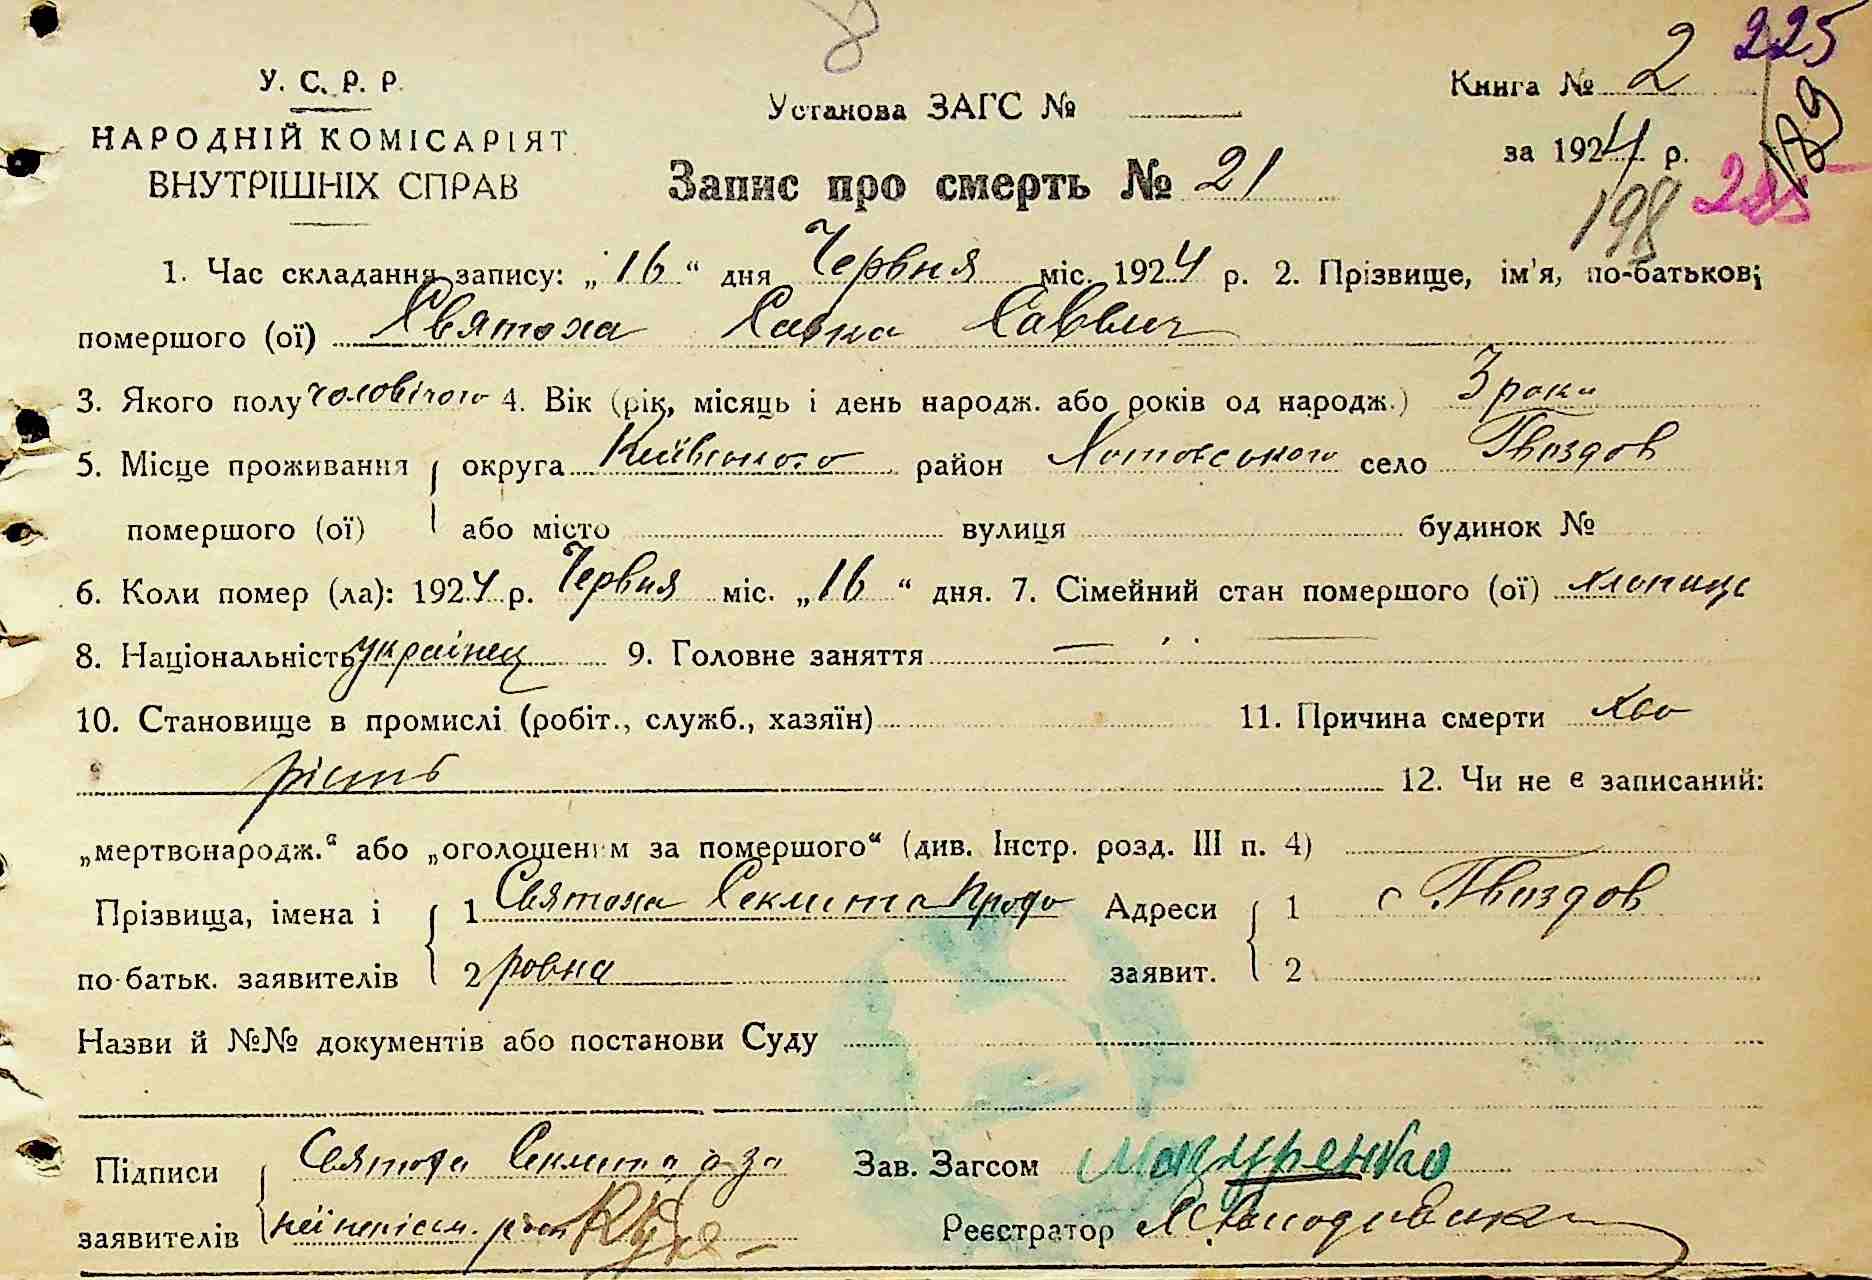 8
225
У. С. Р. Р.
Книга № 2
189
Установа ЗАГС №
НАРОДНІЙ КОМІСАРІЯТ
за 1924 р.
ВНУТРІШНІХ СПРАВ
Запис про смерть № 21
225
198
1. Час складання запису: „16“ дня Червня міс. 1924 р. 2. Прізвище, ім'я, по-батькові
помершого (ої) Святоха Савка Саввич
3. Якого полу чоловічого 4. Вік (рік, місяць і день народж. або років од народж.) 3 роки
5. Місце проживання округа Київського район Хотовського село Гвоздов
помершого (ої) або місто вулиця будинок №
6. Коли помер (ла): 1924 р. Червня міс. „16“ дня. 7. Сімейний стан помершого (ої) хлопиць
8. Національність українец 9. Головне заняття —
10. Становище в промислі (робіт., служб., хазяїн) 11. Причина смерти хво
рість 12. Чи не є записаний:
„мертвонародж.“ або „оголошеним за помершого“ (див. Інстр. розд. III п. 4)
Прізвища, імена і 1 Святоха Секлита Продо Адреси 1 с Гвоздов
по-батьк. заявителів 2 ровна заявит. 2
Назви й №№ документів або постанови Суду
Підписи Святоха Секлита, а за Зав. Загсом Мазуренко
заявителів неї неписьм. Реєстратор